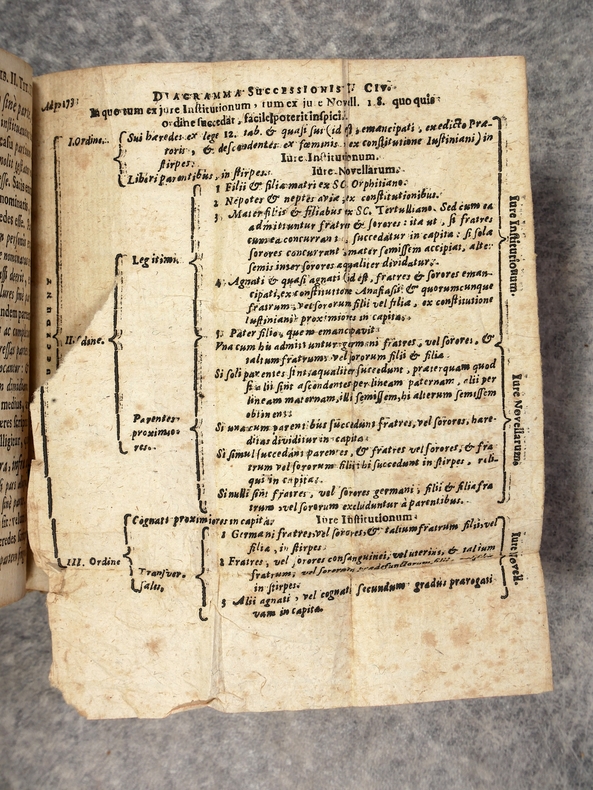 Ad p. 173.
DIAGRAMMA SUCCESSIONIS Civ.
In quo tum ex jure Institutionum, tum ex jure Novell. 18. quo quis
ordine succedat, facile poterit inspici.
I. Ordine.
Sui hæredes ex lege 12. tab. & quasi sui (id est, emancipati, ex edicto Præ-
toris, & descendentes ex fœminis, ex constitutione Iustiniani) in
stirpes.
Iure Institutionum.
Liberi parentibus, in stirpes.
Iure Novellarum.
II. Ordine.
Legitimi.
1 Filii & filiæ matri ex SC. Orphitiano.
2 Nepotes & neptes aviæ, ex constitutionibus.
3 Mater filiis & filiabus ex SC. Tertulliano. Sed cum ea
admittuntur fratres & sorores: ita ut, si fratres
cum ea concurrant, succedatur in capita: si solæ
sorores concurrant, mater semissem accipiat, alte-
semis inter sorores æqualiter dividatur.
4 Agnati & quasi agnati (id est, fratres & sorores eman-
cipati, ex constitutione Anastasii: & quorumcunque
fratrum, vel sororum filii vel filiæ, ex constitutione
Iustiniani) proximiores in capita.
5 Pater filio, quem emancipavit.
Iure Institutionum.
Parentes
proximio-
res.
Vna cum his admittuntur germani fratres, vel sorores, &
talium fratrum, vel sororum filii & filiæ.
Si soli parentes sint, æqualiter succedunt, præterquam quod
si alii sint ascendentes per lineam paternam, alii per
lineam maternam, illi semissem, hi alterum semissem
obtinent.
Si una cum parentibus succedant fratres, vel sorores, hære-
ditas dividitur in capita.
Si simul succedant parentes, & fratres vel sorores, & fra-
trum vel sororum filii: hi succedunt in stirpes, reli-
qui in capita.
Si nulli sint fratres, vel sorores germani, filii & filiæ fra-
trum vel sororum excluduntur à parentibus.
Iure Novellarum.
III. Ordine
Cognati proximiores in capita.
Iure Institutionum.
Transver-
sales.
1 Germani fratres, vel sorores, & talium fratrum filii, vel
filiæ, in stirpes.
2 Fratres, vel sorores consanguinei, vel uterini, & talium
fratrum, vel sororum
in stirpes.
3 Alii agnati, vel cognati secundum gradus prærogati-
vam in capita.
Iure Novell.